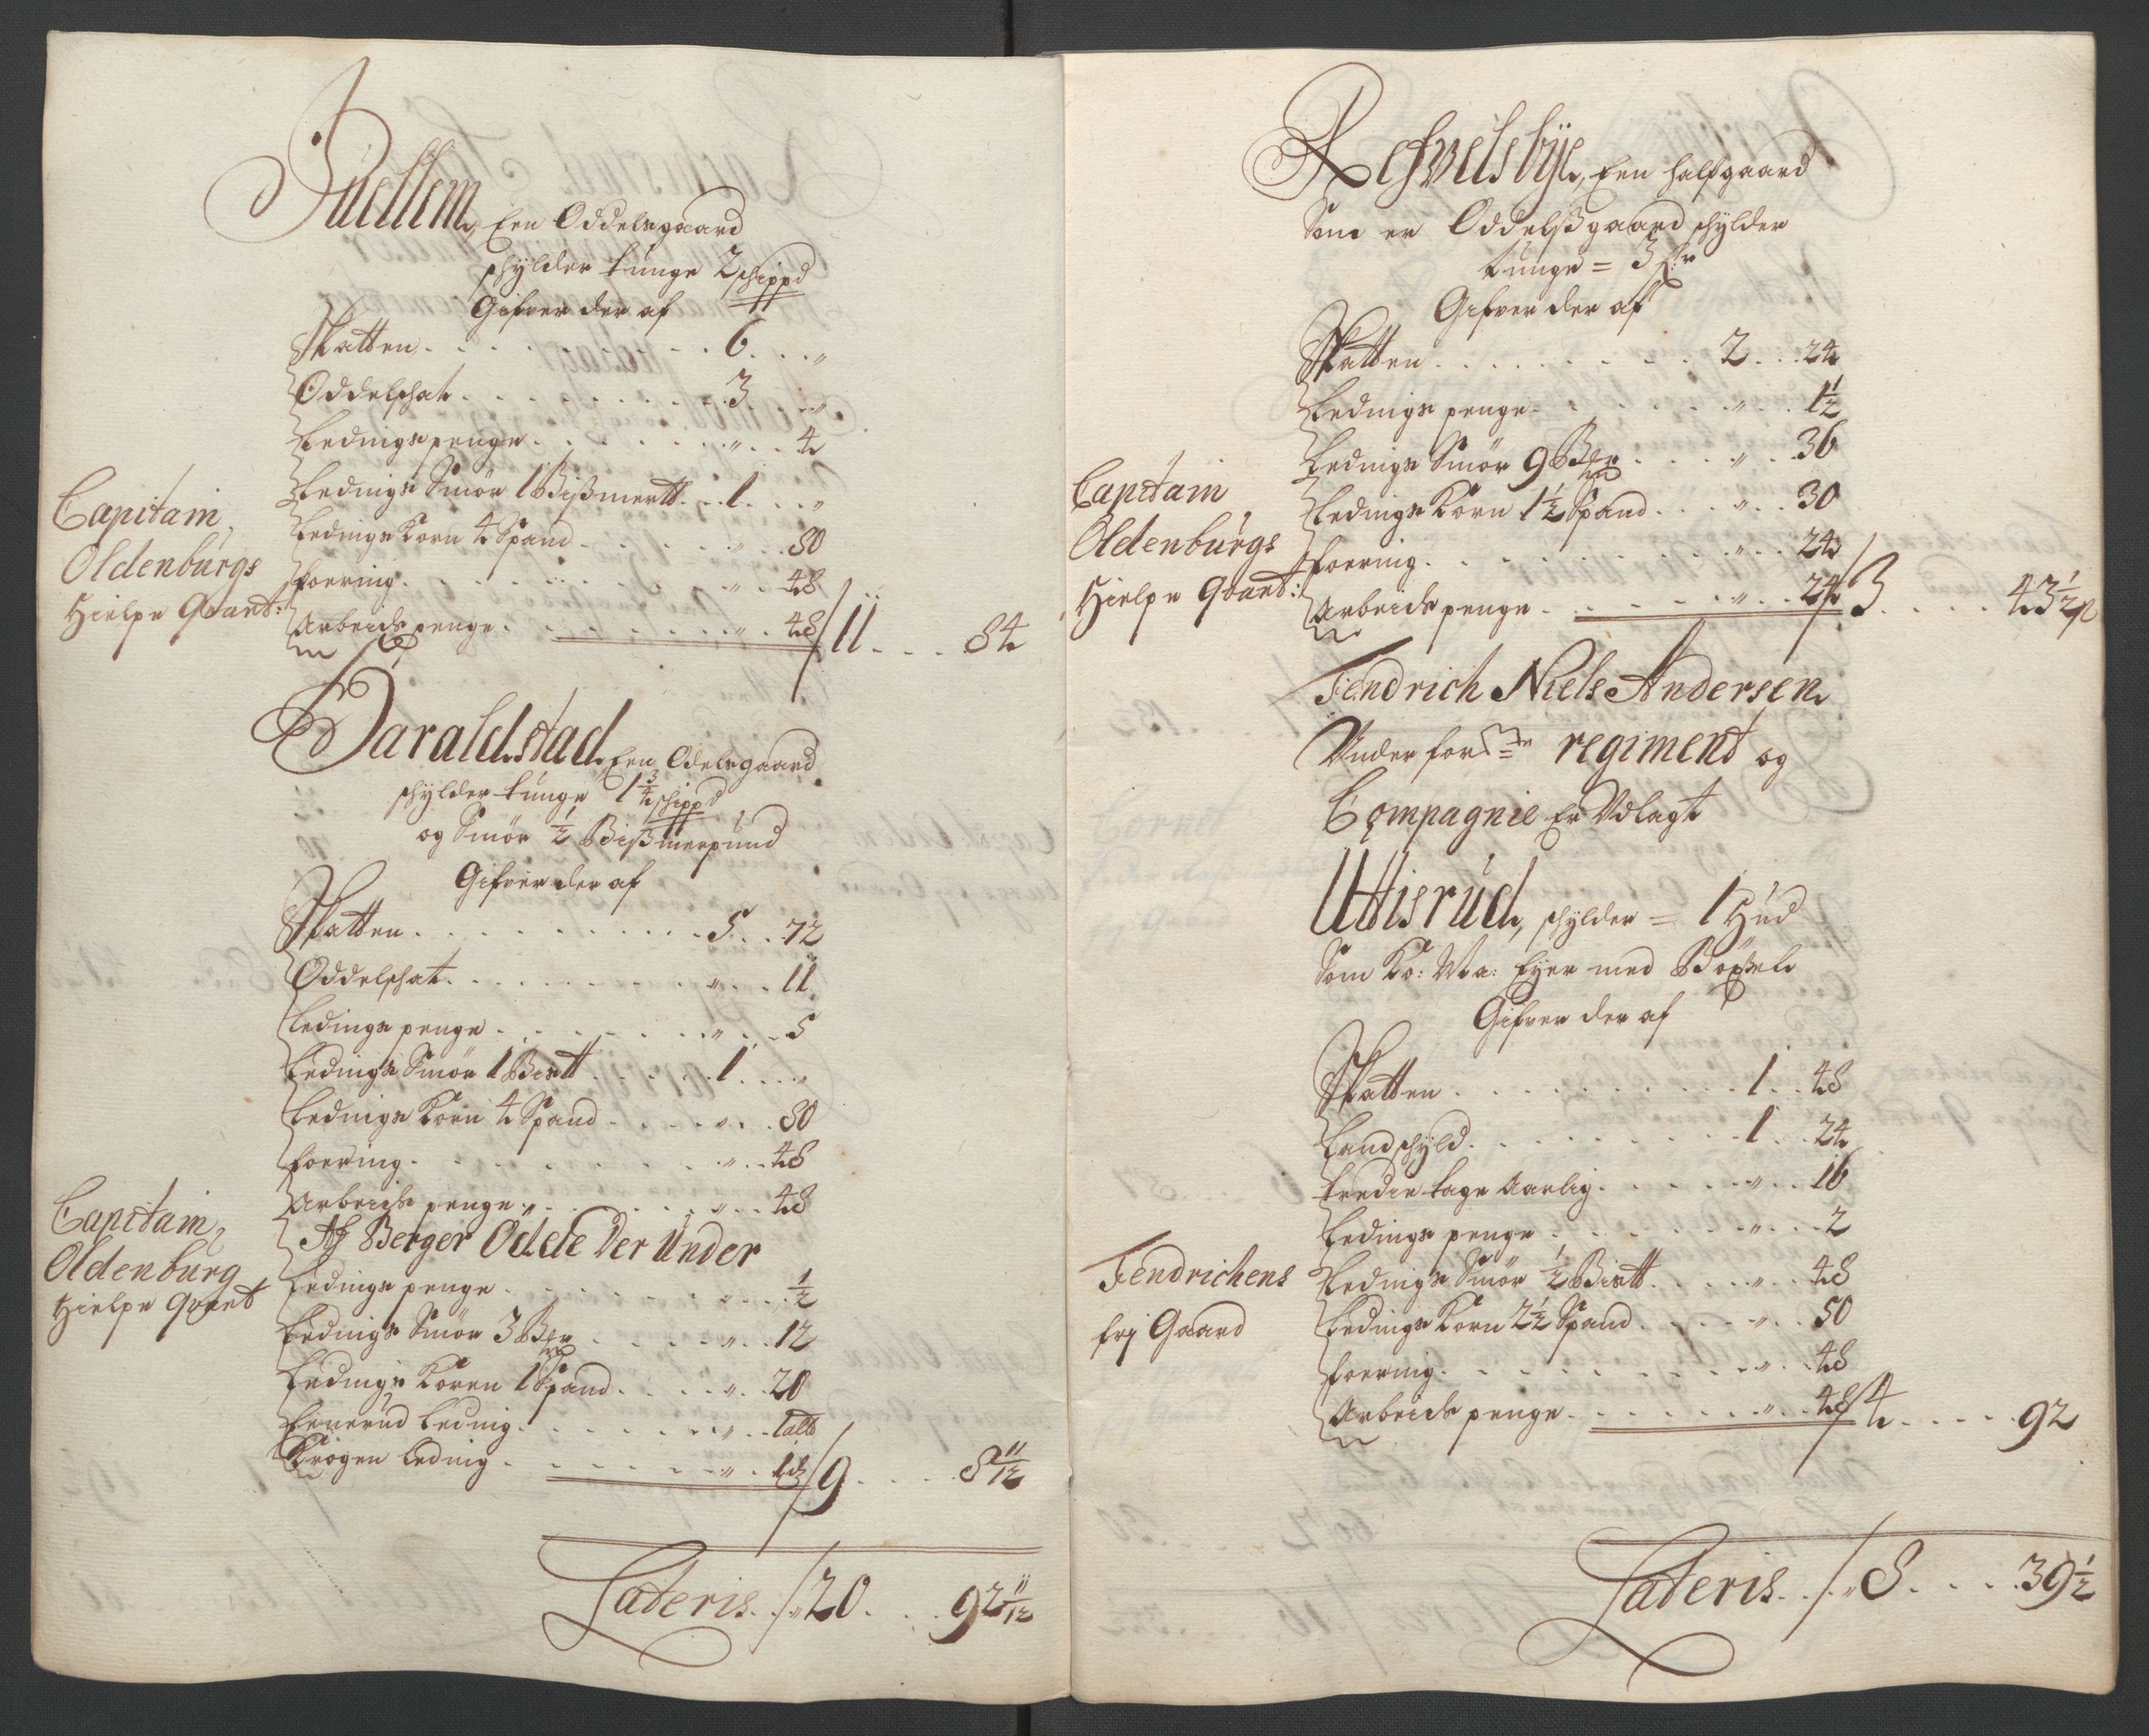 Juellem, Een Oddelsgaard
schylder tunge 2 schippd
Gifver der af
Skatten . . . 6 . . . "
Oddelschat . . . 3 . . . "
Ledings penge . . . " . . 4
Ledings Smör 1 Bißmertt . . 1 . . . "
Ledings Korn 4 Spand . . . " . . 80
foering . . . " . . 48
Arbeids penge . . . " . . 48 / 11 . . . 84
Capitain
Oldenburgs
Hielpe Qvart:
Haraldstad, Een Odelsgaard
schylder tunge 1 3/4 schippd
og Smör 1/2 Bißmerpund
Gifver der af
Skatten . . . 5 . . 72
Oddelschat . . . " . . 11
Ledings penge . . . " . . 5
Ledings Smör 1 Bertt . . . 1 . . . "
Ledings Korn 4 Spand . . . " . . 80
foering . . . " . . 48
Arbeids penge . . . " . . 48
Af Berger Odde der Under
Ledings penge . . . " . . 1/2
Ledings Smör 3 Ber . . . " . . 12
Ledings Koren 1 Spand . . . " . . 20
Lenerud Leding . . . " . . 1 alb
Krogen Leding . . . " . . 1 / 9 . . . 8 11/12
Capitain
Oldenburg
Hielpe Qvart
Lateris . . / 20 . . . 92 11/12
Refvelsbye, Een halfgaard
Som er Oddelsgaard schylder
tunge = 3
Gifver der af
Skatten . . . 2 . . 24
Ledings penge . . . " . . 1 1/2
Ledings Smör 9 Ber . . . " . . 36
Ledings Korn 1 1/2 Spand . . . " . . 30
foering . . . " . . 24
Arbeids penge . . . " . . 24 / 3 . . . 43 1/2
Capitain
Oldenburgs
Hielpe Qvart:
Fendrich Niels Andersen
Under for= regiment og
Compagnie Er Udlagt
Uttisrud, schylder = 1 Hud
Som Ko: Ma: Eyer med Böxsel
Gifver der af
Skatten . . . 1 . . 48
Landschyld . . . 1 . . 24
tredie tage Aarlig . . . " . . 16
Ledings penge . . . " . . 2
Ledings Smör 1/2 Bertt . . . " . . 48
Ledings Korn 2 1/2 Spand . . . " . . 50
foering . . . " . . 48
Arbeids penge . . . " . . 48 / 4 . . . 92
Fendrichens
frj Gaard
Lateris . . / " 8 . . . 39 1/2